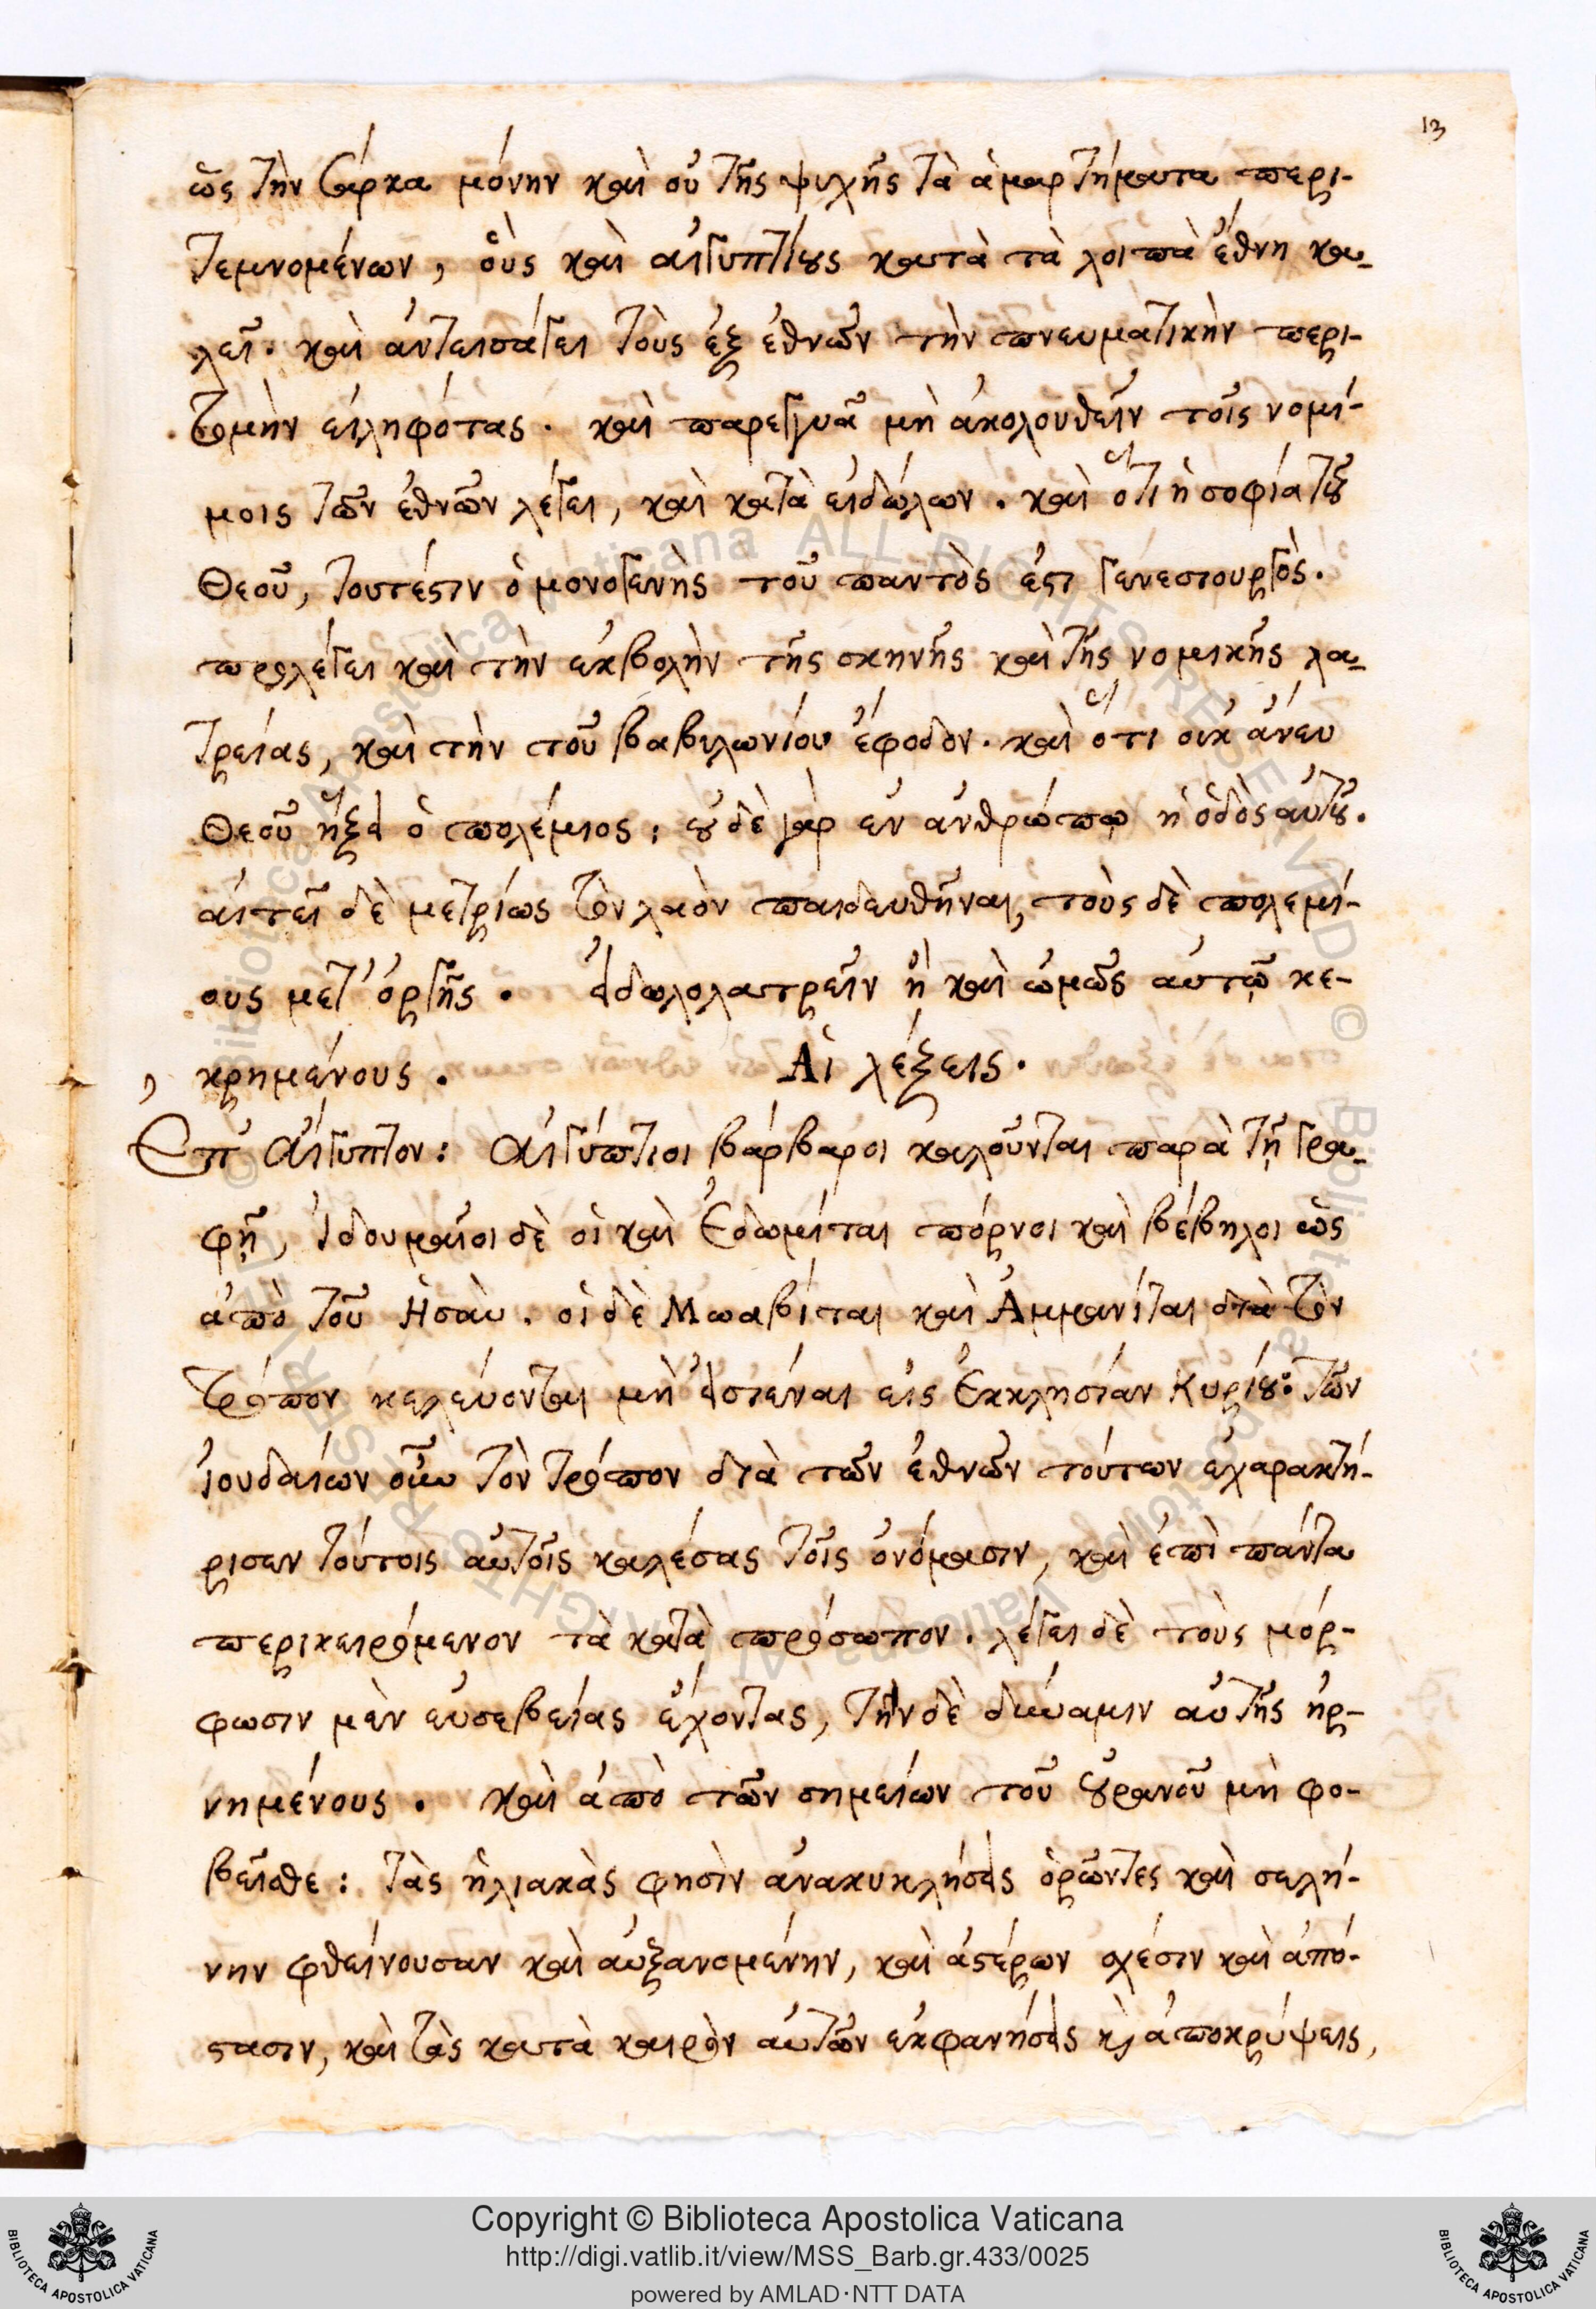 13
ὡς τὴν σάρκα μόνην καὶ οὐ τῆς ψυχῆς τὰ ἁμαρτήματα περι-
τεμνομένων, οὓς καὶ αἰγυπτίους κατὰ τὰ λοιπὰ ἔθνη κα-
λεῖ. καὶ ἀντεισάγει τοὺς ἐξ ἐθνῶν τὴν πνευματικὴν περι-
τομὴν εἰληφότας. καὶ παρεγγυᾶ μὴ ἀκολουθεῖν τοῖς νομί-
μοις τῶν ἐθνῶν λέγει, καὶ κατὰ εἰδώλων. καὶ ὅτι ἡ σοφία τοῦ
Θεοῦ, τουτέστιν ὁ μονογενὴς τοῦ παντὸς ἐστι γενεσιουργὸς.
προλέγει καὶ τὴν ἐκβολὴν τῆς σκηνῆς καὶ τῆς νομικῆς λα-
τρείας, καὶ τὴν τοῦ βαβυλωνίου ἔφοδον. καὶ ὅτι οὐκ ἄνευ
Θεοῦ ἥξει ὁ πολέμιος, οὐδὲ γὰρ ἐν ἀνθρώπῳ ἡ ὁδὸς αὐτοῦ.
αἰτεῖ δὲ μετρίως τὸν λαὸν παιδευθῆναι, τοὺς δὲ πολεμί-
ους μετ' ὀργῆς. εἰδωλολατρεῖν ἢ καὶ ὠμῶς αὐτῷ κε-
χρημένους.
Αἱ λέξεις.
Ἐπ' Αἴγυπτον: Αἰγύπτιοι βάρβαροι καλοῦνται παρὰ τῇ γρα-
φῇ, Ἰδουμαῖοι δὲ οἱ καὶ Ἐδωμίται πόρνοι καὶ βέβηλοι ὡς
ἀπὸ τοῦ Ἡσαὺ. οἱ δὲ Μωαβίται καὶ Ἀμμανίται διὰ τὸν
τρόπον κελεύονται μὴ εἰσιέναι εἰς Ἐκκλησίαν Κυρίου. τῶν
ἰουδαίων οὖν τὸν τρόπον διὰ τῶν ἐθνῶν τούτων ἐχαρακτή-
ρισεν τούτοις αὐτοῖς καλέσας τοῖς ὀνόμασιν, καὶ ἐπὶ πάντα
περικειρόμενον τὰ κατὰ πρόσωπον. λέγει δὲ τοὺς μόρ-
φωσιν μὲν εὐσεβείας ἔχοντας, τὴν δὲ δύναμιν αὐτῆς ἠρ-
νημένους. καὶ ἀπὸ τῶν σημείων τοῦ οὐρανοῦ μὴ φο-
βεῖσθε: τὰς ἡλιακὰς φησὶν ἀνακυκλήσεις ὁρῶντες καὶ σελή-
νην φθείνουσαν καὶ αὐξανομένην, καὶ ἀστέρων σχέσιν καὶ ἀπό-
στασιν, καὶ τὰς κατὰ καιρὸν αὐτῶν ἐκφανήσεις κὶ ἀποκρύψεις,
Copyright © Biblioteca Apostolica Vaticana
http://digi.vatlib.it/view/MSS_Barb.gr.433/0025
powered by AMLAD·NTT DATA